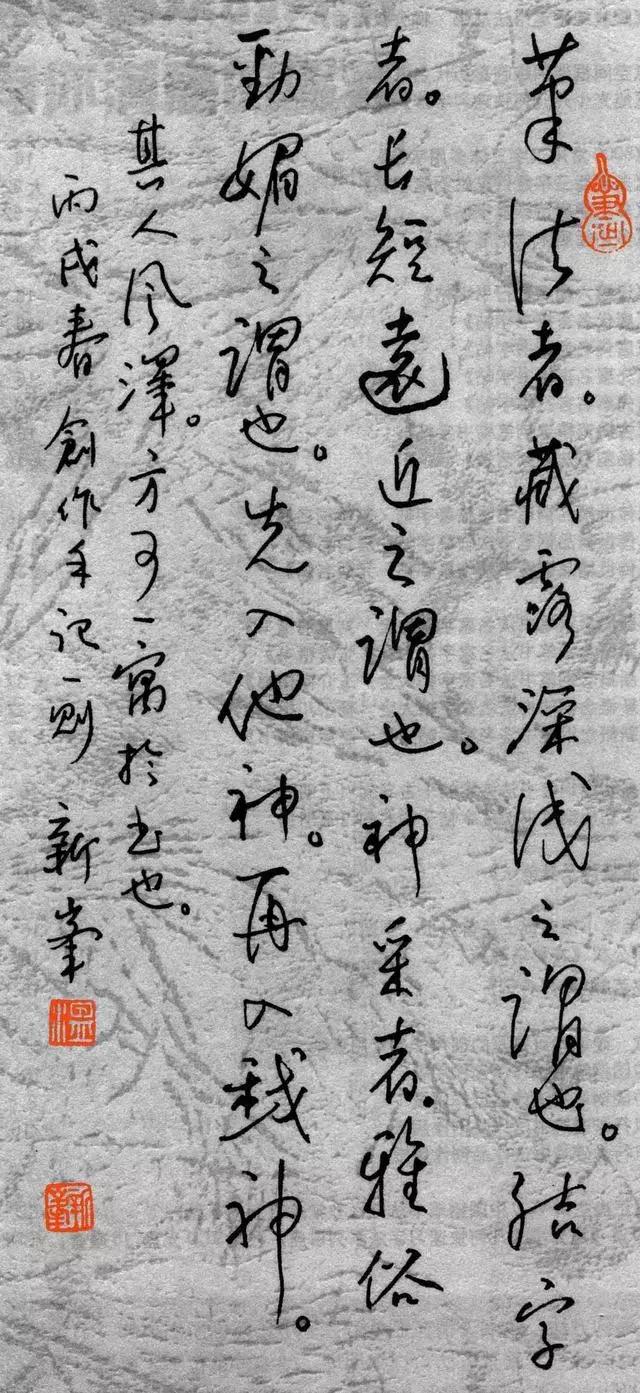 筆法者。藏露深浅之謂也。结字
者。长短遠近之謂也。神采者。雅俗
勁媚之謂也。先入他神。再入我神。
其人风澤。方可一寓於书也。
丙戌春創作手记一则 新峯